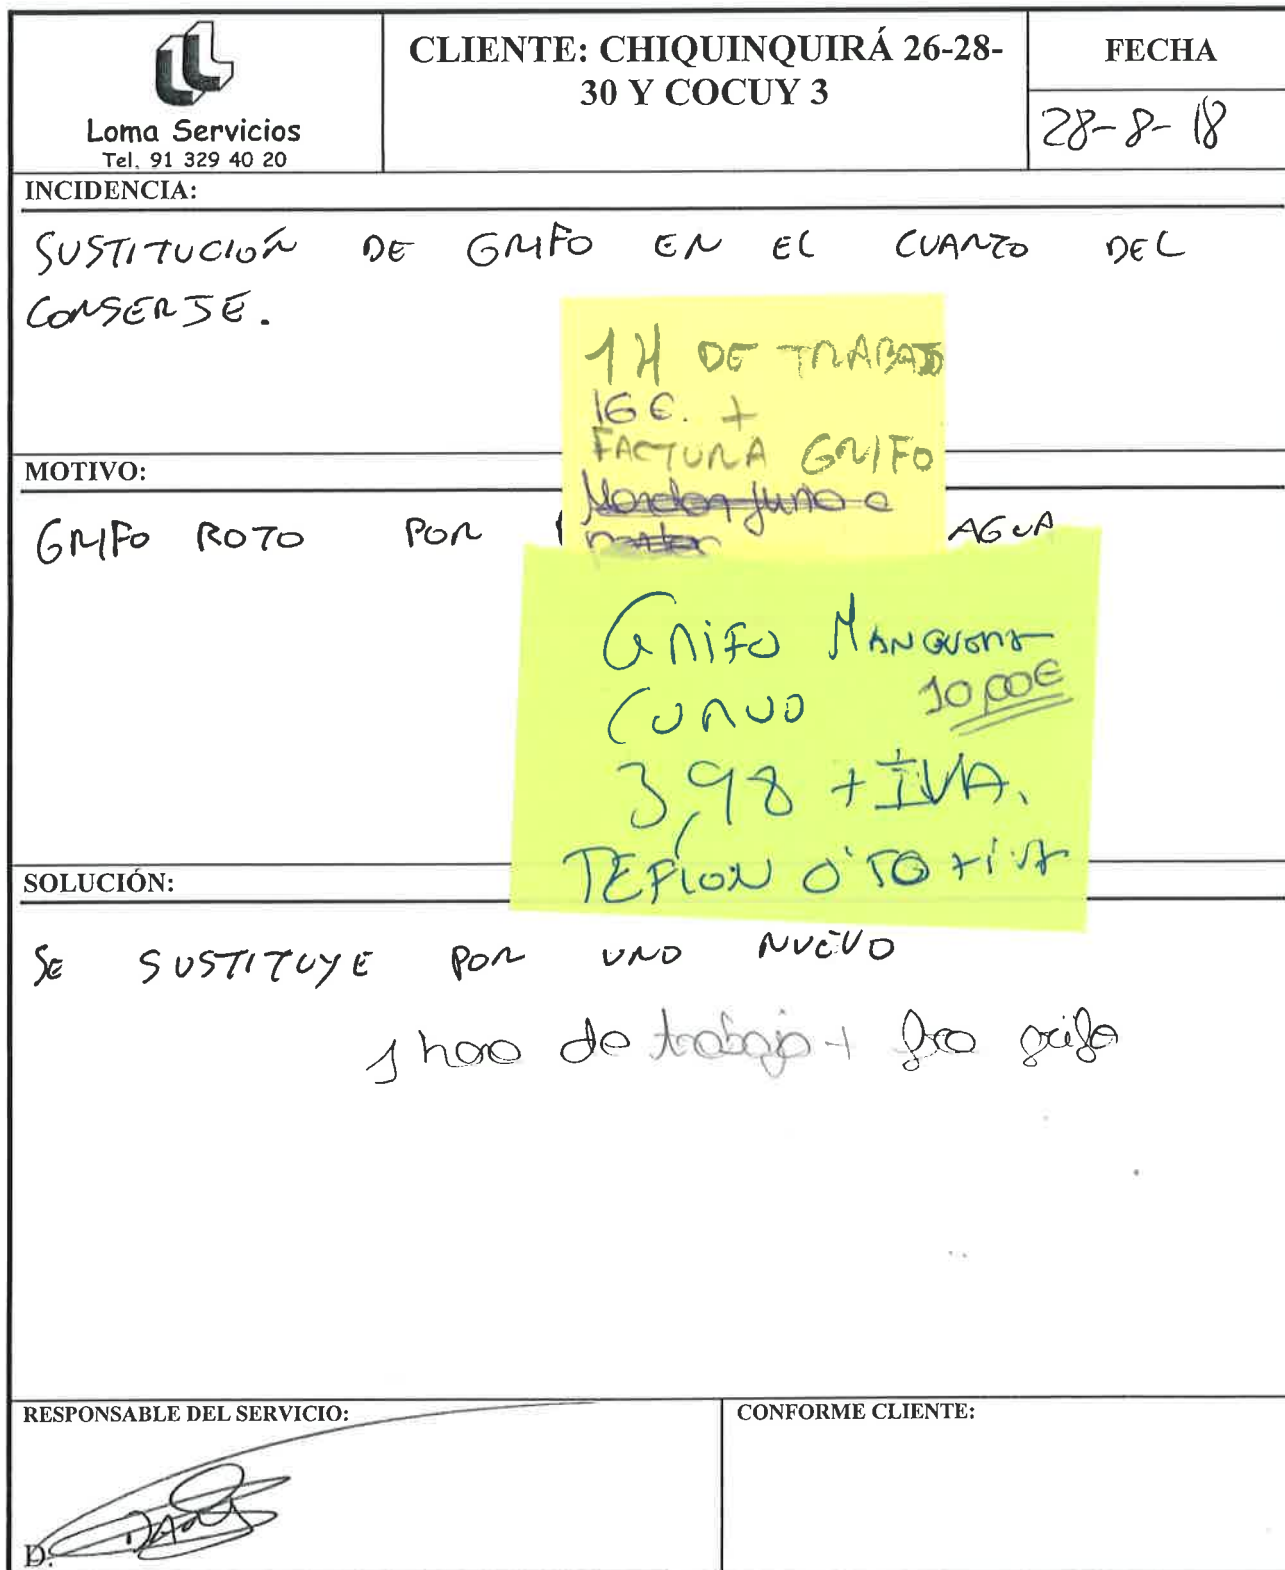 Loma Servicios
Tel. 91 329 40 20
CLIENTE: CHIQUINQUIRÁ 26-28-
30 Y COCUY 3
FECHA
28-8-18
INCIDENCIA:
SUSTITUCIÓN DE GRIFO EN EL CUARTO DEL
CONSERJE.
1H DE TRABAJO
16 €. +
FACTURA GRIFO
MOTIVO:
GRIFO ROTO POR AGUA
GRIFO MANGUERA
CURVO 10,00€
3,98 + IVA.
TEFLON 0'50 + IVA
SOLUCIÓN:
SE SUSTITUYE POR UNO NUEVO
1 hora de trabajo + fra grifo
RESPONSABLE DEL SERVICIO:
CONFORME CLIENTE:
D.